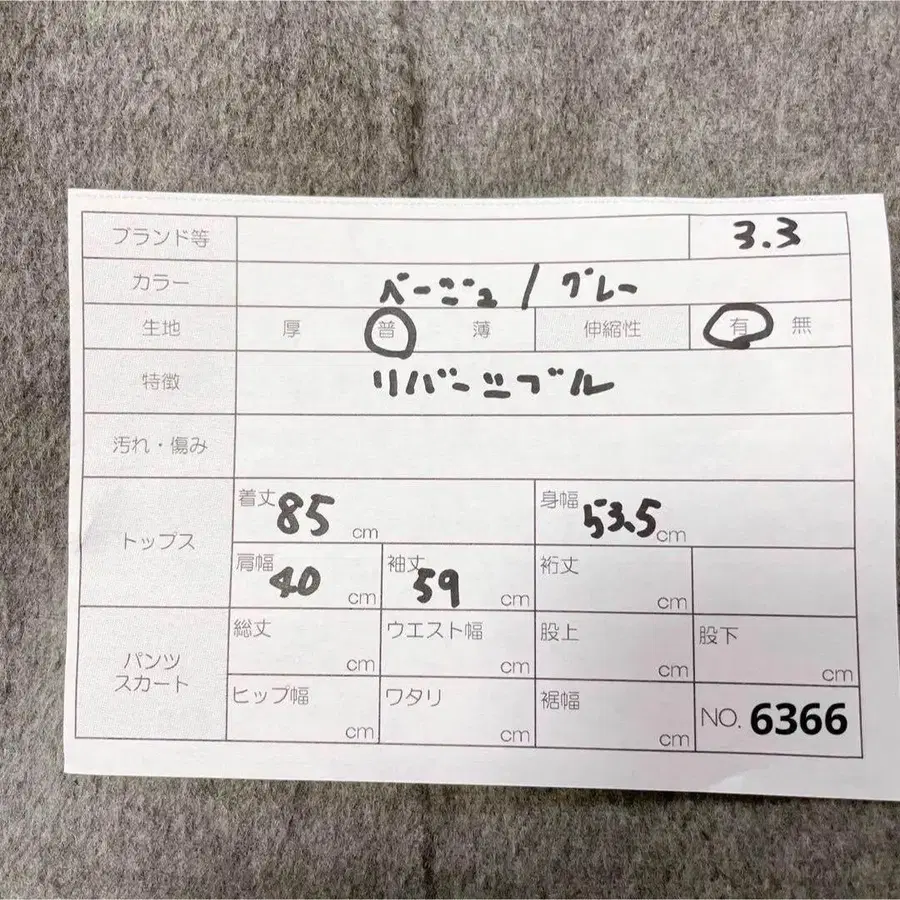 ブランド等 3.3
カラー ベージュ / グレー
生地 厚 普 薄 伸縮性 有 無
特徴 リバーシブル
汚れ・傷み
トップス
着丈 85 cm 身幅 53.5 cm
肩幅 40 cm 袖丈 59 cm 裄丈 cm
パンツ
スカート
総丈 cm ウエスト幅 cm 股上 cm 股下 cm
ヒップ幅 cm ワタリ cm 裾幅 cm NO. 6366